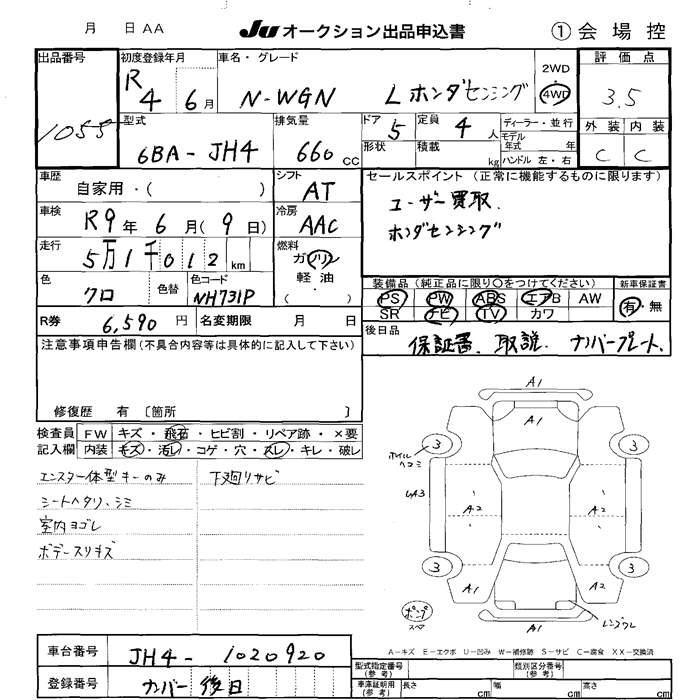 月 日 AA JU オークション出品申込書 ① 会場控
出品番号 初度登録年月 車名・グレード 2WD 評価点
1055 R4 6月 N-WGN L ホンダセンシング 4WD 3.5
型式 排気量 ドア 定員 ディーラー・並行 外装 内装
6BA-JH4 660 CC 5 4人 モデル年式 年 C C
形状 積載 kg ハンドル 左・右
車歴 自家用・( ) シフト AT セールスポイント (正常に機能するものに限ります)
車検 R9年 6月(9日) 冷房 AAC ユーザー買取.
走行 5万1千012km 燃料 ガソリン ホンダセンシング
軽油
・( )
色 クロ 色替 色コード NH731P 装備品 (純正品に限り○をつけてください) 新車保証書
PS PW ABS エアB AW 有・無
SR ナビ TV カワ
R券 6,590円 名変期限 月 日 後日品
注意事項申告欄(不具合内容等は具体的に記入して下さい) 保証書、取説、ナンバープレート.
修復歴 有〔箇所 〕
検査員 FW キズ・飛石・ヒビ割・リペア跡・×要
記入欄 内装 キズ・汚レ・コゲ・穴・スレ・キレ・破レ
エンスタ一体型キーのみ 下廻リサビ
シートヘタリ、シミ
室内ヨゴレ
ボデースリキズ
A1
A1
3 3
ホイルヘコミ
UA3 A2 A2
3 3
A1 A2
ポンプ
スペア
A1 レンズワレ
A-キズ E-エクボ U-凹み W-補修跡 S-サビ C-腐食 XX-交換済
車台番号 JH4-1020920 型式指定番号(参考) 類別区分番号(参考)
登録番号 ナンバー後日 車庫証明用(参考) 長さ cm 幅 cm 高さ cm